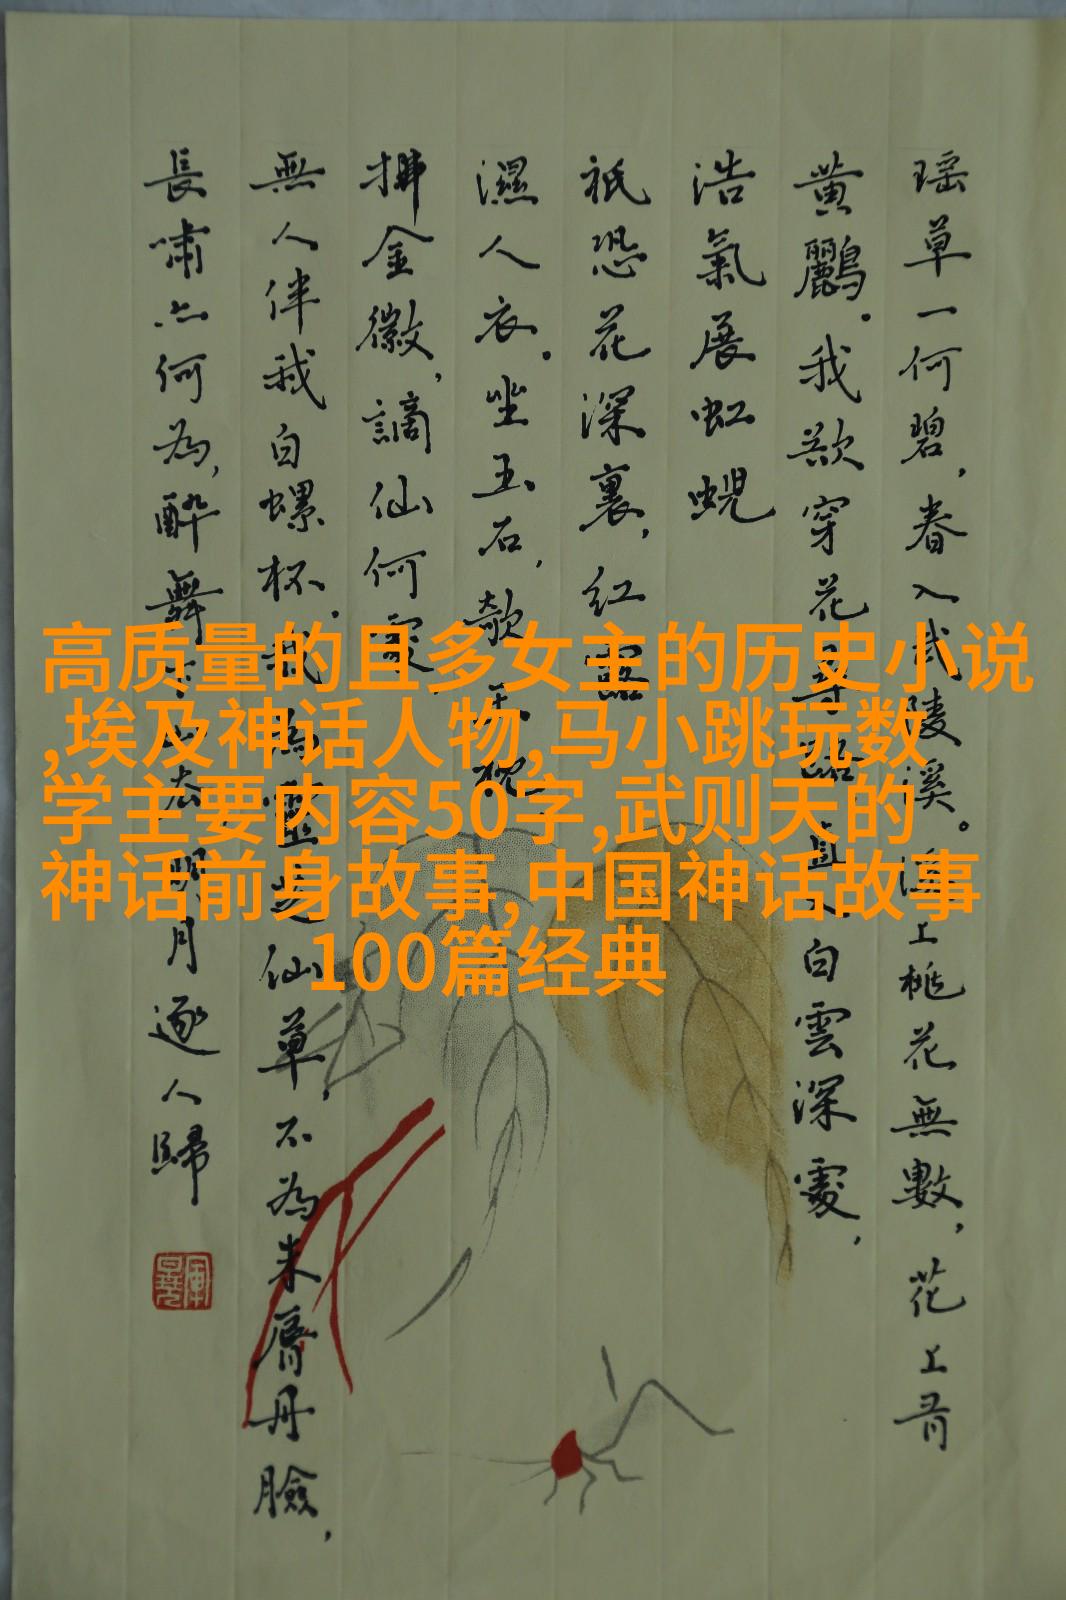 瑶草一何碧，春入武陵溪。溪上桃花無數，花上有
黄鸝。我欲穿花尋路，直入白雲深處，
浩氣展虹蜺
祇恐花深裏，紅露
濕人衣。坐玉石，欹玉枕
拂金徽，謫仙何處
無人伴我白螺杯。我為靈芝仙草，不為朱唇丹臉，
長嘯亦何為，醉舞下山去明月逐人歸
高质量的且多女主的历史小说
,埃及神话人物,马小跳玩数
学主要内容50字,武则天的
神话前身故事,中国神话故事
100篇经典